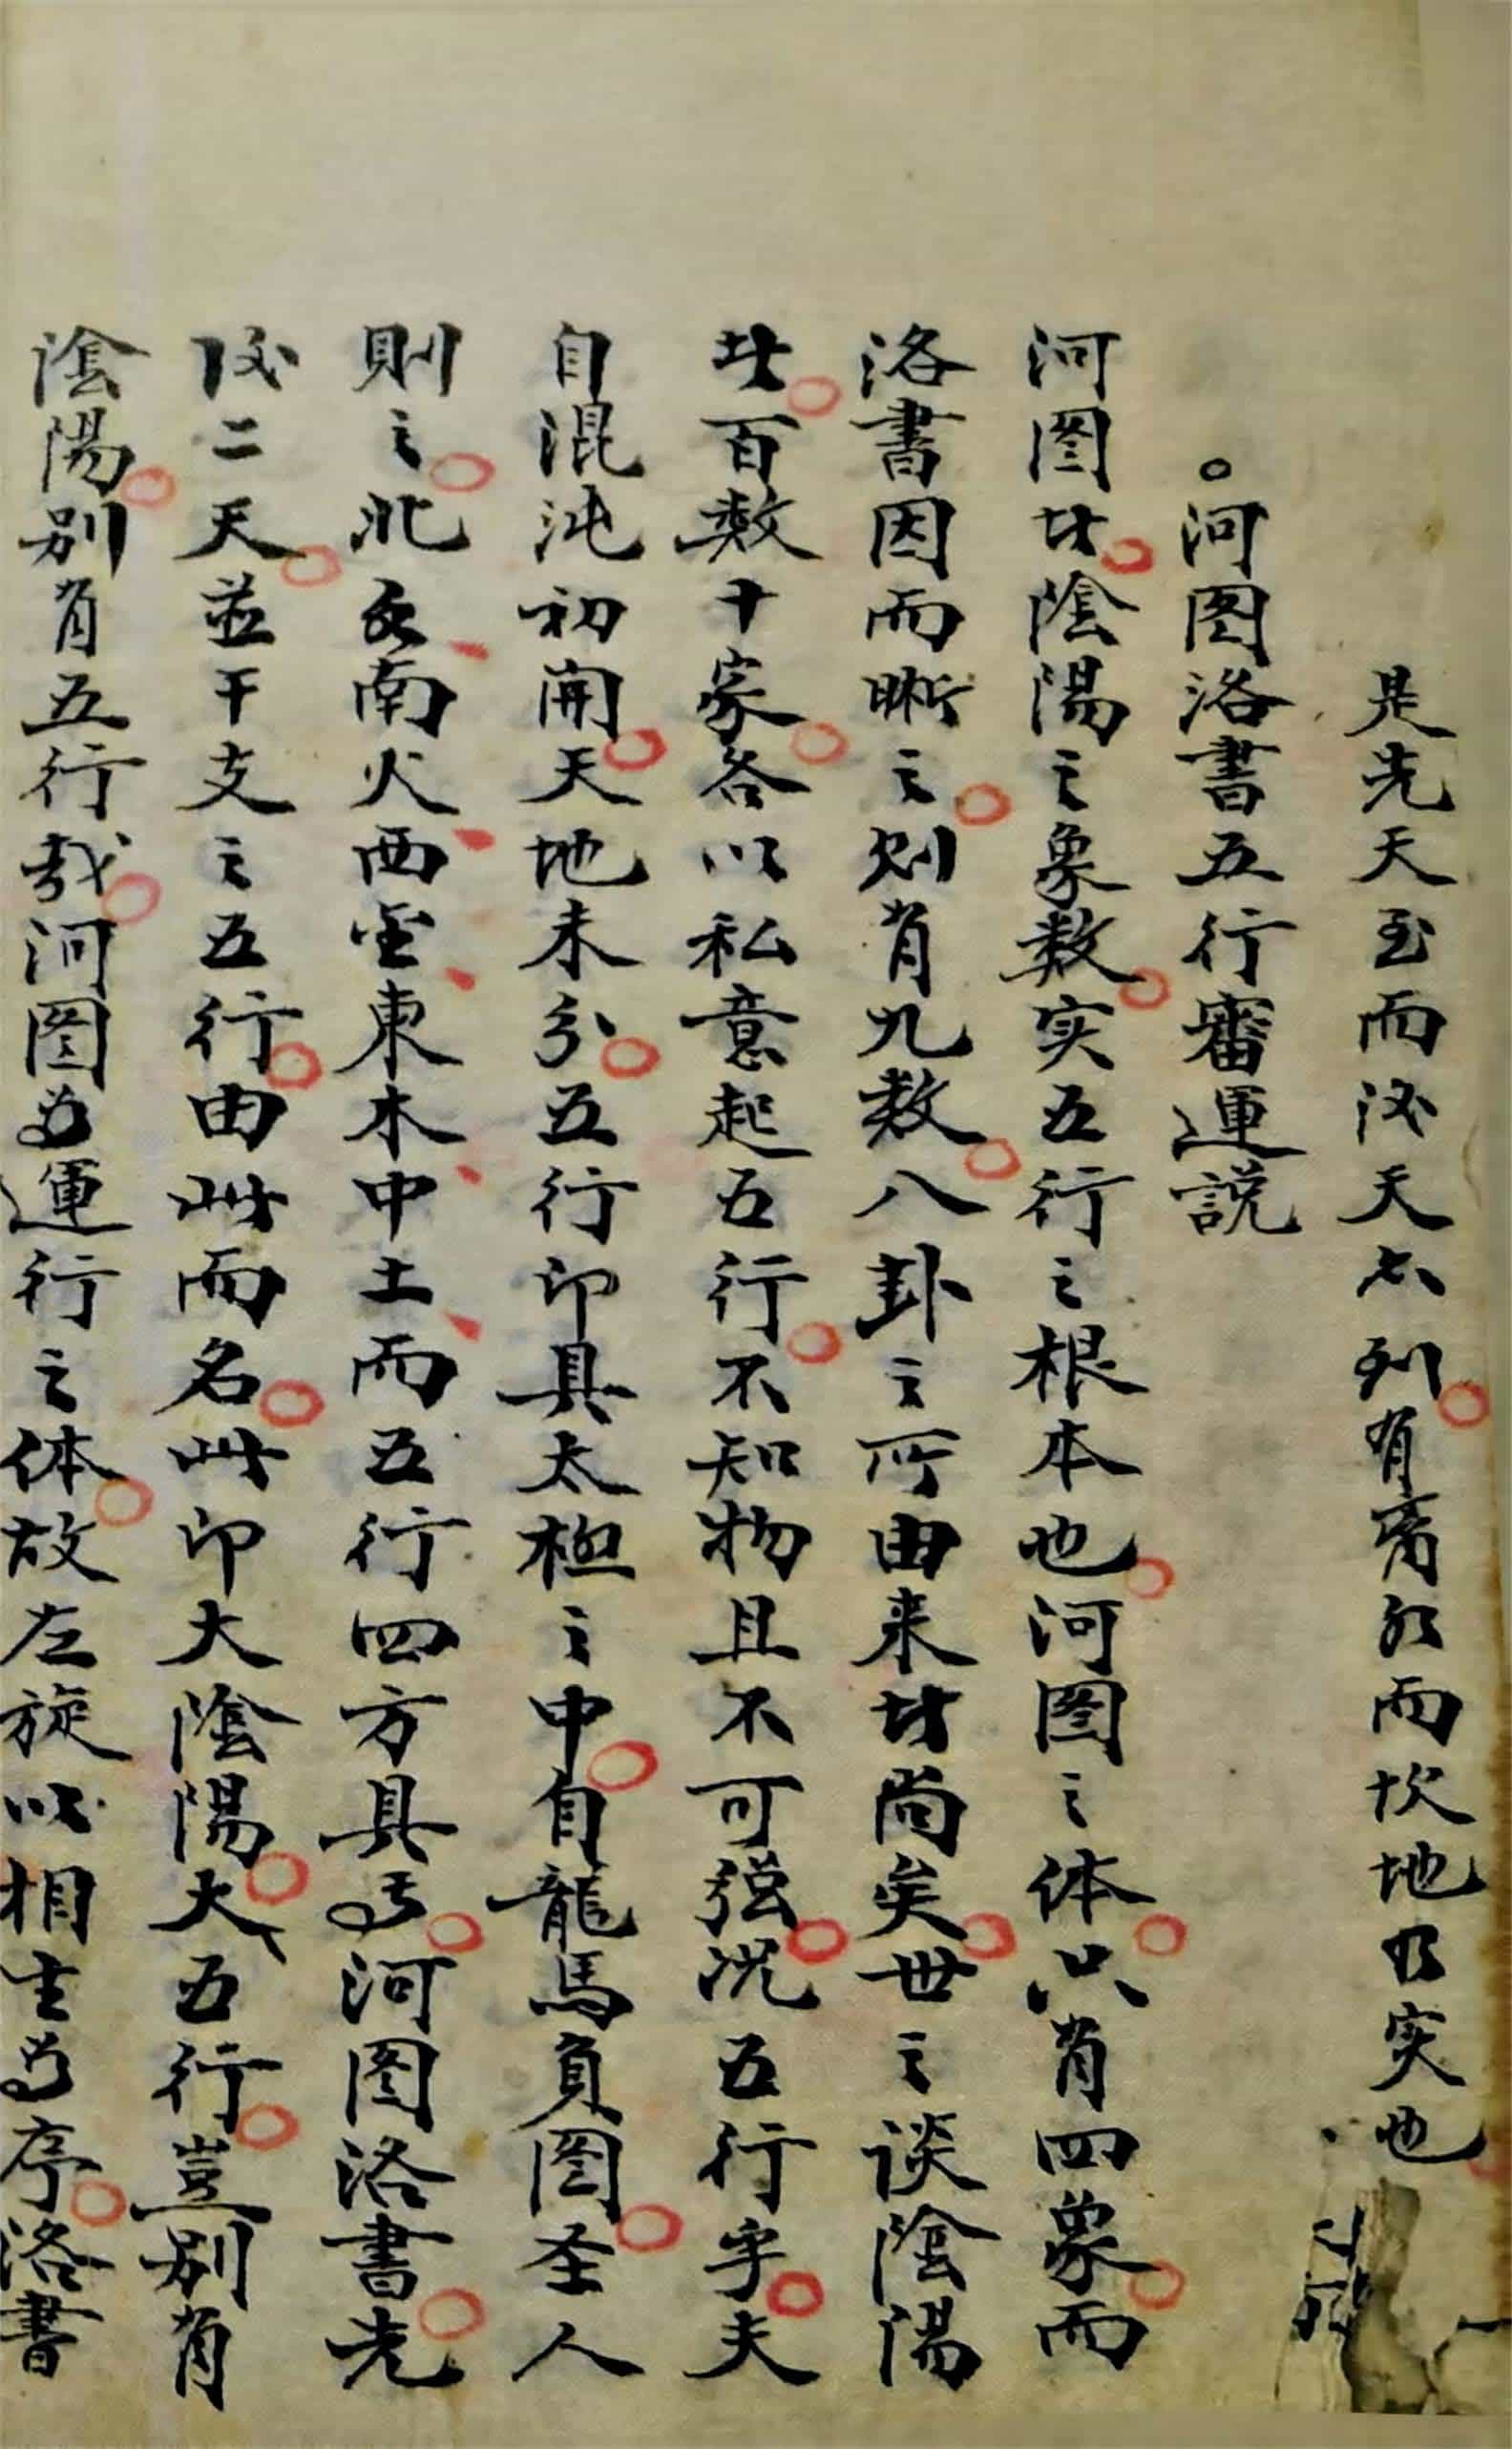 是先天至而後天亦列有离虚而坎地乃实也
河图洛書五行審運説
河图者陰陽之象数实五行之根本也河图之体只有四象而
洛書因而晰之则有九数八卦之所由来者尚矣世之谈陰陽
者百数十家各以私意起五行不知物且不可强况五行乎夫
自混沌初開天地未分五行即具太極之中自龍馬負图圣人
則之北水南火西金東木中土而五行四方具焉河图洛書先
後二天並干支之五行由此而名此即大陰陽大五行豈别有
陰陽别有五行哉河图為運行之体故左旋以相生為序洛書